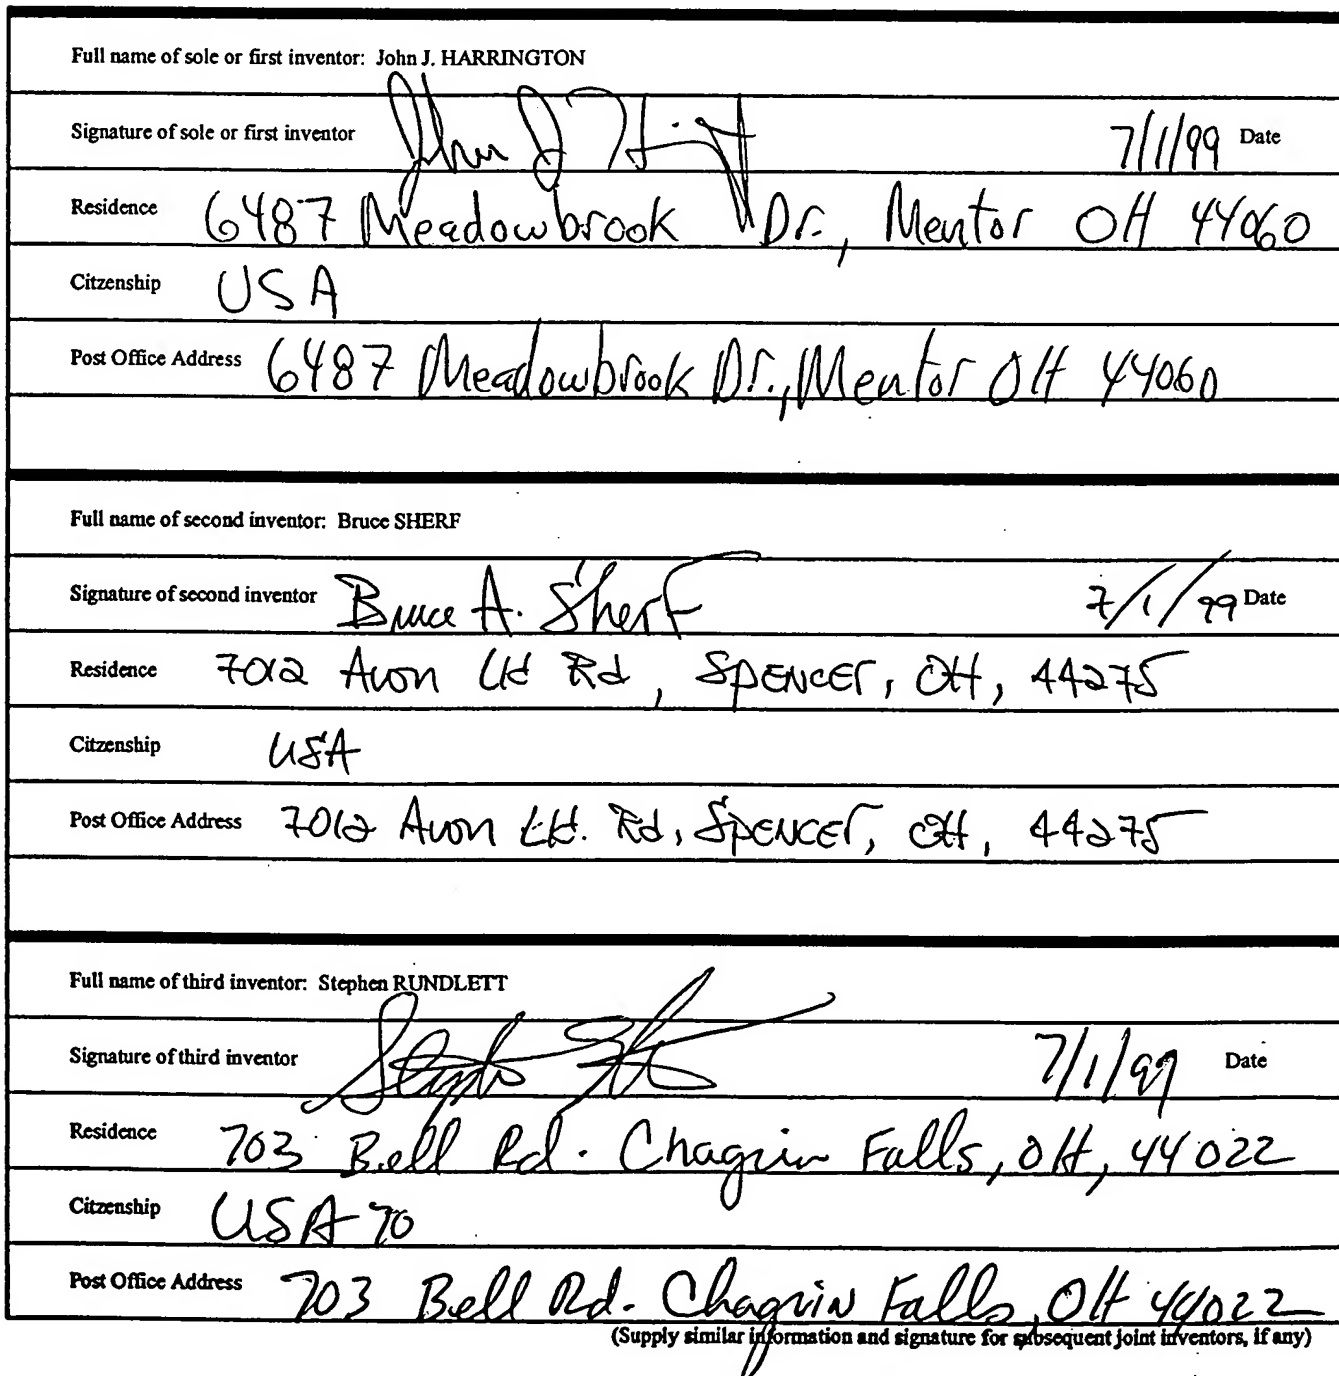 Full name of sole or first inventor: John J. HARRINGTON
Signature of sole or first inventor John J 7/1/99 Date
Residence 6487 Meadowbrook Dr., Mentor OH 44060
Citzenship USA
Post Office Address 6487 Meadowbrook Dr., Mentor OH 44060
Full name of second inventor: Bruce SHERF
Signature of second inventor Bruce A. Sherf 7/1/99 Date
Residence 7012 Avon Ld Rd, SPENCEr, OH, 44275
Citzenship USA
Post Office Address 7012 Avon Ld. Rd, SPENCEr, OH, 44275
Full name of third inventor: Stephen RUNDLETT
Signature of third inventor 7/1/99 Date
Residence 703 Bell Rd. Chagrin Falls, OH, 44022
Citzenship USA 70
Post Office Address 703 Bell Rd. Chagrin Falls, OH 44022
(Supply similar information and signature for subsequent joint inventors, if any)